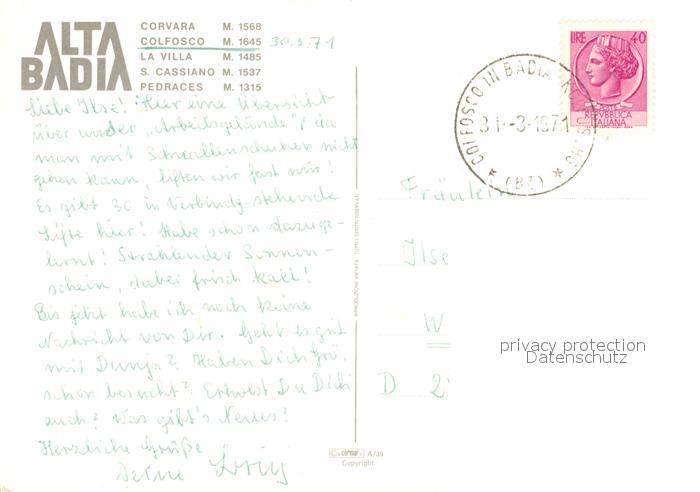 ALTA
BADIA
CORVARA M. 1568
COLFOSCO M. 1645 30.3.71
LA VILLA M. 1485
S. CASSIANO M. 1537
PEDRACES M. 1315
Liebe Ilse! Hier eine Übersicht
über unser „Arbeitsgelände“; da
man mit Schnallenschuhen nicht
gehen kann, liften wir fast nur!
Es gibt 30 in Verbindg. stehende
Lifte hier! Habe schon dazuge-
lernt! Strahlender Sonnen-
schein, dabei frisch kalt!
Bis jetzt habe ich noch keine
Nachricht von Dir. Geht es gut
mit Dunja? Haben Dich Grö.
schon besucht? Erholst Du Dich
auch? Was gibt's Neues?
Herzliche Grüße
Deine
RIPRODUZIONE VIETATA - TUTTI I DIRITTI RISERVATI
A/39
Copyright
LIRE 40
POSTE
REPVBBLICA
ITALIANA
COLFOSCO IN BADIA
31-3-1971
(BZ)
Fräulein
Ilse
W
D 2
privacy protection
Datenschutz